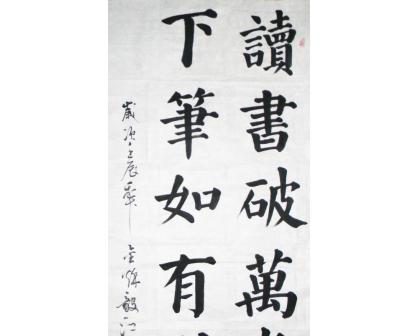 讀書破萬
下筆如有
歲次壬辰